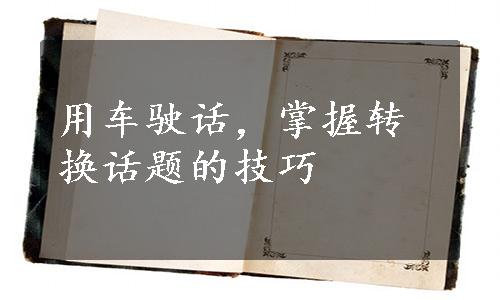 用车驶话，掌握转
换话题的技巧